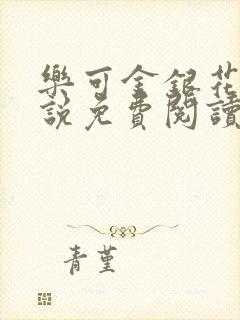 樂可金銀花
說免費閱讀
青堇